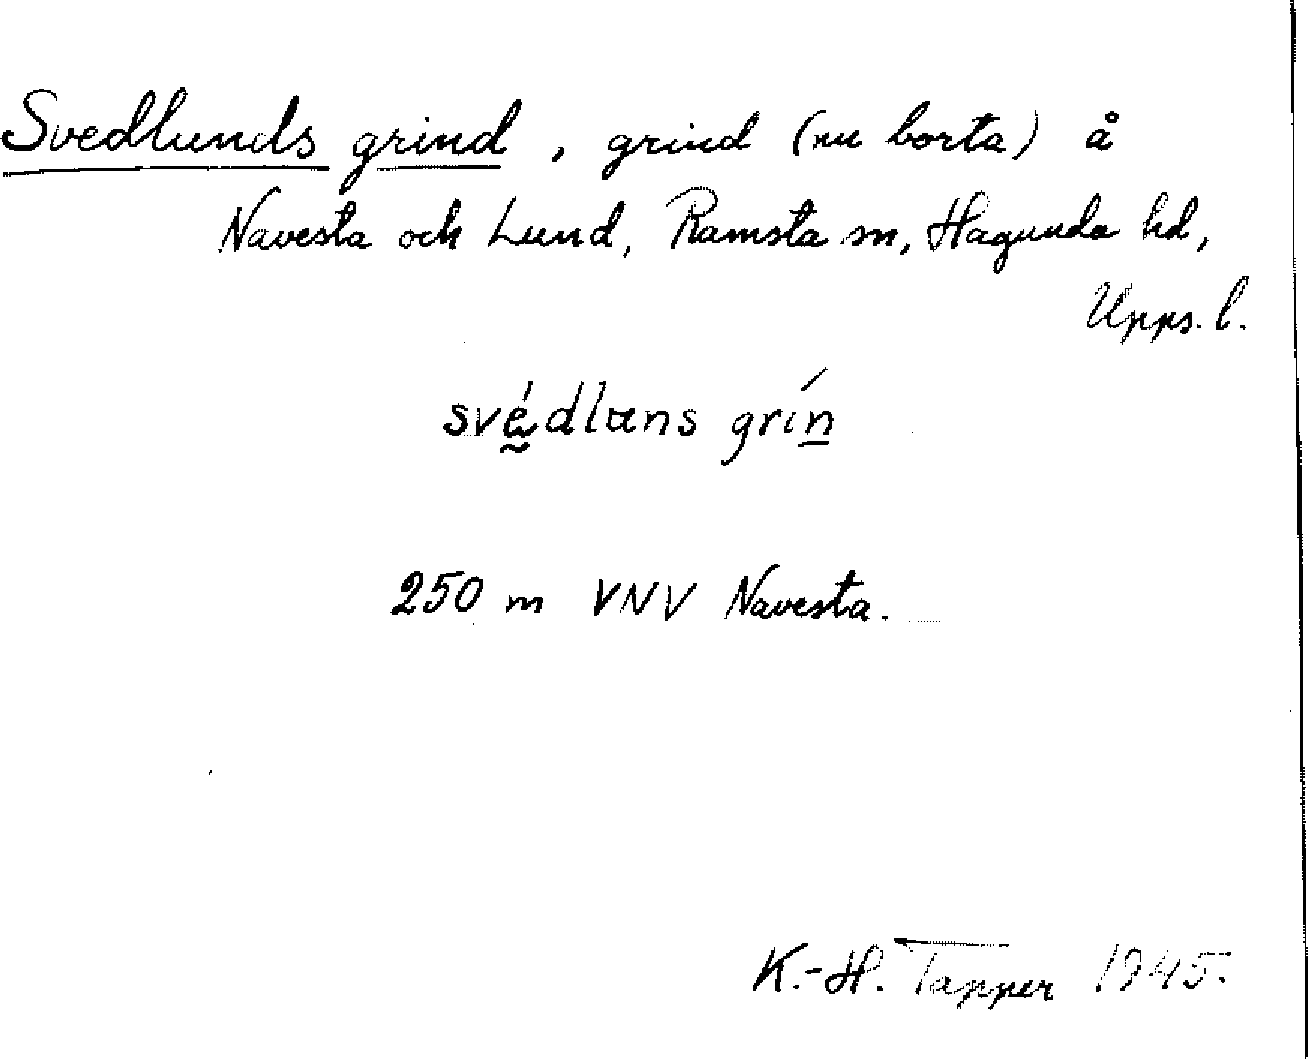 Svedlunds grind, grind (nu borta) å
Navesta och Lund, Ramsta sn, Hagunda hd,
Upps. l.
svédlɯns grín
250 m VNV Navesta.
K.-H. Tapper 1945.